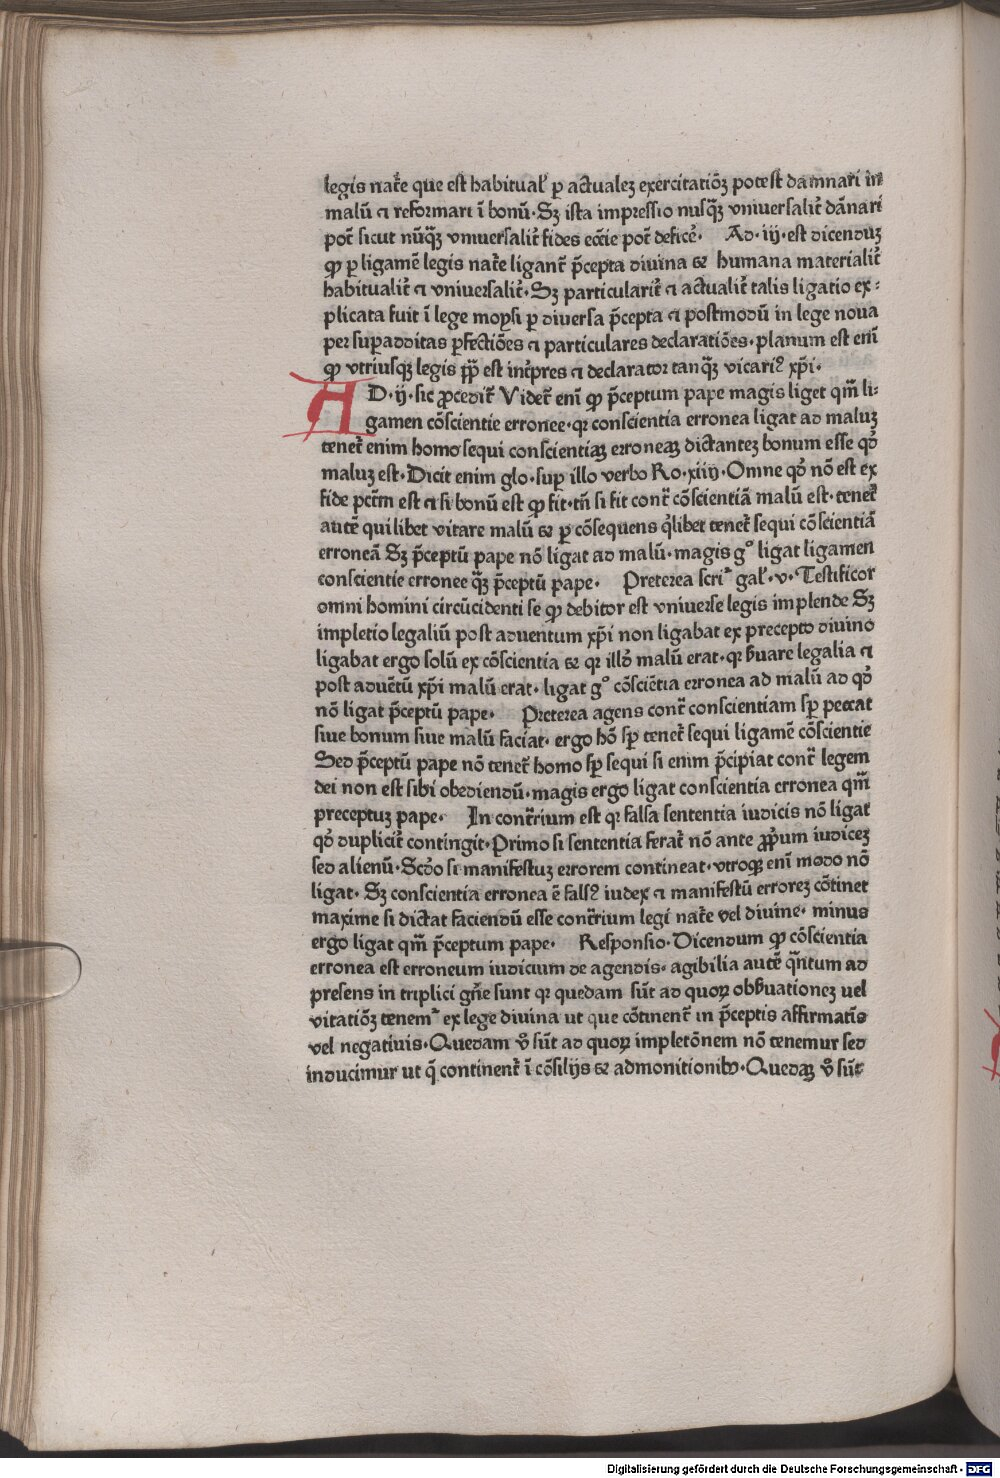 legis nat̃e que est habitual̕ ꝑ actualeȝ exercitatiõȝ potest damnari in
malũ ⁊ reformari ĩ bonũ· Sȝ ista impressio nusq̃ȝ vniuersalit̃ dãnari
pot̃ sicut nũq̃ȝ vniuersalit̃ fides eccie pot̃ deficẽ· Ad·iij·est dicenduȝ
ꝙ ꝑ ligamẽ legis nat̃e ligant̃ p̃cepta diuina ⁊ humana materialit̃
habitualit̃ ⁊ vniuersalit̃· Sȝ particularit̃ ⁊ actualit̃ talis ligatio ex⸗
plicata fuit ĩ lege moysi ꝑ diuersa p̃cepta ⁊ postmodũ in lege noua
per suꝑadditas ꝑfectiões ⁊ particulares declaratiões· planum est enĩ
ꝙ vtriusqȝ legis pp̃ est int̃pres ⁊ declarator tanq̃ȝ vicariꝰ xp̃i·
AD·ij·sic ꝓcedit̃ Videt̃ enĩ ꝙ p̃ceptum pape magis liget qm̃ li⸗
gamen cõscientie erronee· qꝛ conscientia erronea ligat ad maluȝ
tenet̃ enim homo sequi conscientiaȝ erroneaȝ dictanteȝ bonum esse qđ
maluȝ est· Dicit enim glo·suꝑ illo verbo Ro·xiiij·Omne qđ nõ est ex
fide pctm̃ est ⁊ si bonũ est ꝙ fit·tñ si fit cont̃ cõscientiã malũ est·tenet̃
autẽ quilibet vitare malũ ⁊ ꝑ cõsequens q̇libet tenet̃ sequi cõscientiã
erroneã Sȝ p̃ceptũ pape nõ ligat ad malũ·magis gͦ ligat ligamen
conscientie erronee q̃ȝ p̃ceptũ pape· Preterea scri͛ gal̕·v·Testificor
omni homini circũcidenti se ꝙ debitor est vniuerse legis implende Sȝ
impletio legaliũ post aduentum xp̃i non ligabat ex precepto diuino
ligabat ergo solũ ex cõscientia ⁊ qꝛ illđ malũ erat·qꝛ ẜuare legalia ⁊
post aduẽtũ xp̃i malũ erat· ligat gͦ cõsciẽtia erronea ad malũ ad qđ
nõ ligat p̃ceptũ pape· Preterea agens cont̃ conscientiam sꝑ peccat
siue bonum siue malũ faciat· ergo hõ sꝑ tenet̃ sequi ligamẽ cõscientie
Sed p̃ceptũ pape nõ tenet̃ homo sꝑ sequi si enim p̃cipiat cont̃ legem
dei non est sibi obediendũ·magis ergo ligat conscientia erronea qm̃
preceptuȝ pape· In cont̃rium est qꝛ falsa sententia iudicis nõ ligat
qđ duplicit̃ contingit·Primo si sententia ferat̃ nõ ante ꝓp̃um iudiceȝ
sed alienũ·Scđo si manifestuȝ errorem contineat·vtroqȝ enĩ modo nõ
ligat· Sȝ conscientia erronea ẽ falsꝰ iudex ⁊ manifestũ erroreȝ cõtinet
maxime si dictat faciendũ esse cont̃rium legi nat̃e vel diuine· minus
ergo ligat qm̃ p̃ceptum pape· Responsio·Dicendum ꝙ cõscientia
erronea est erroneum iudicium de agendis·agibilia autẽ q̃ntum ad
presens in triplici gñe sunt qꝛ quedam sũt ad quoꝝ obẜuationeȝ uel
vitatiõȝ tenem͛ ex lege diuina ut que cõtinent̃ in p̃ceptis affirmatĩs
vel negatiuis·Quedam v̊ sũt ad quoꝝ impletõnem nõ tenemur sed
inducimur ut q̃ continent̃ ĩ cõsilijs ⁊ admonitionibꝰ·Quedaȝ v̊ sũt
Digitalisierung gefördert durch die Deutsche Forschungsgemeinschaft - DFG